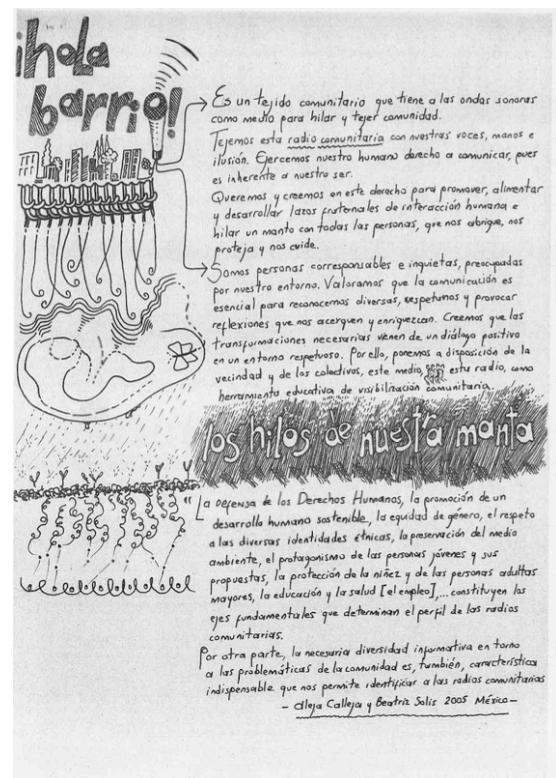 ¡hola
barrio!
Es un tejido comunitario que tiene a las ondas sonoras
como medio para hilar y tejer comunidad.
Tejemos esta radio comunitaria con nuestras voces, manos e
ilusión. Ejercemos nuestro humano derecho a comunicar, pues
es inherente a nuestro ser.
Queremos y creemos en este derecho para promover, alimentar
y desarrollar lazos fraternales de interacción humana e
hilar un manto con todas las personas, que nos abrigue, nos
proteja y nos cuide.
Somos personas corresponsables e inquietas, preocupadas
por nuestro entorno. Valoramos que la comunicación es
esencial para reconocernos diversas, respetarnos y provocar
reflexiones que nos acerquen y enriquezcan. Creemos que las
transformaciones necesarias vienen de un diálogo positivo
en un entorno respetuoso. Por ello, ponemos a disposición de la
vecindad y de los colectivos, este medio, esta radio, como
herramienta educativa de visibilización comunitaria.
los hilos de nuestra manta
"La Defensa de los Derechos Humanos, la promoción de un
desarrollo humano sostenible, la equidad de género, el respeto
a las diversas identidades étnicas, la preservación del medio
ambiente, el protagonismo de las personas jóvenes y sus
propuestas, la protección de la niñez y de las personas adultas
mayores, la educación y la salud [el empleo],... constituyen los
ejes fundamentales que determinan el perfil de las radios
comunitarias.
Por otra parte, la necesaria diversidad informativa en torno
a las problemáticas de la comunidad es, también, característica
indispensable que nos permite identificar a las radios comunitarias
- Aleja Calleja y Beatriz Solís 2005 México -